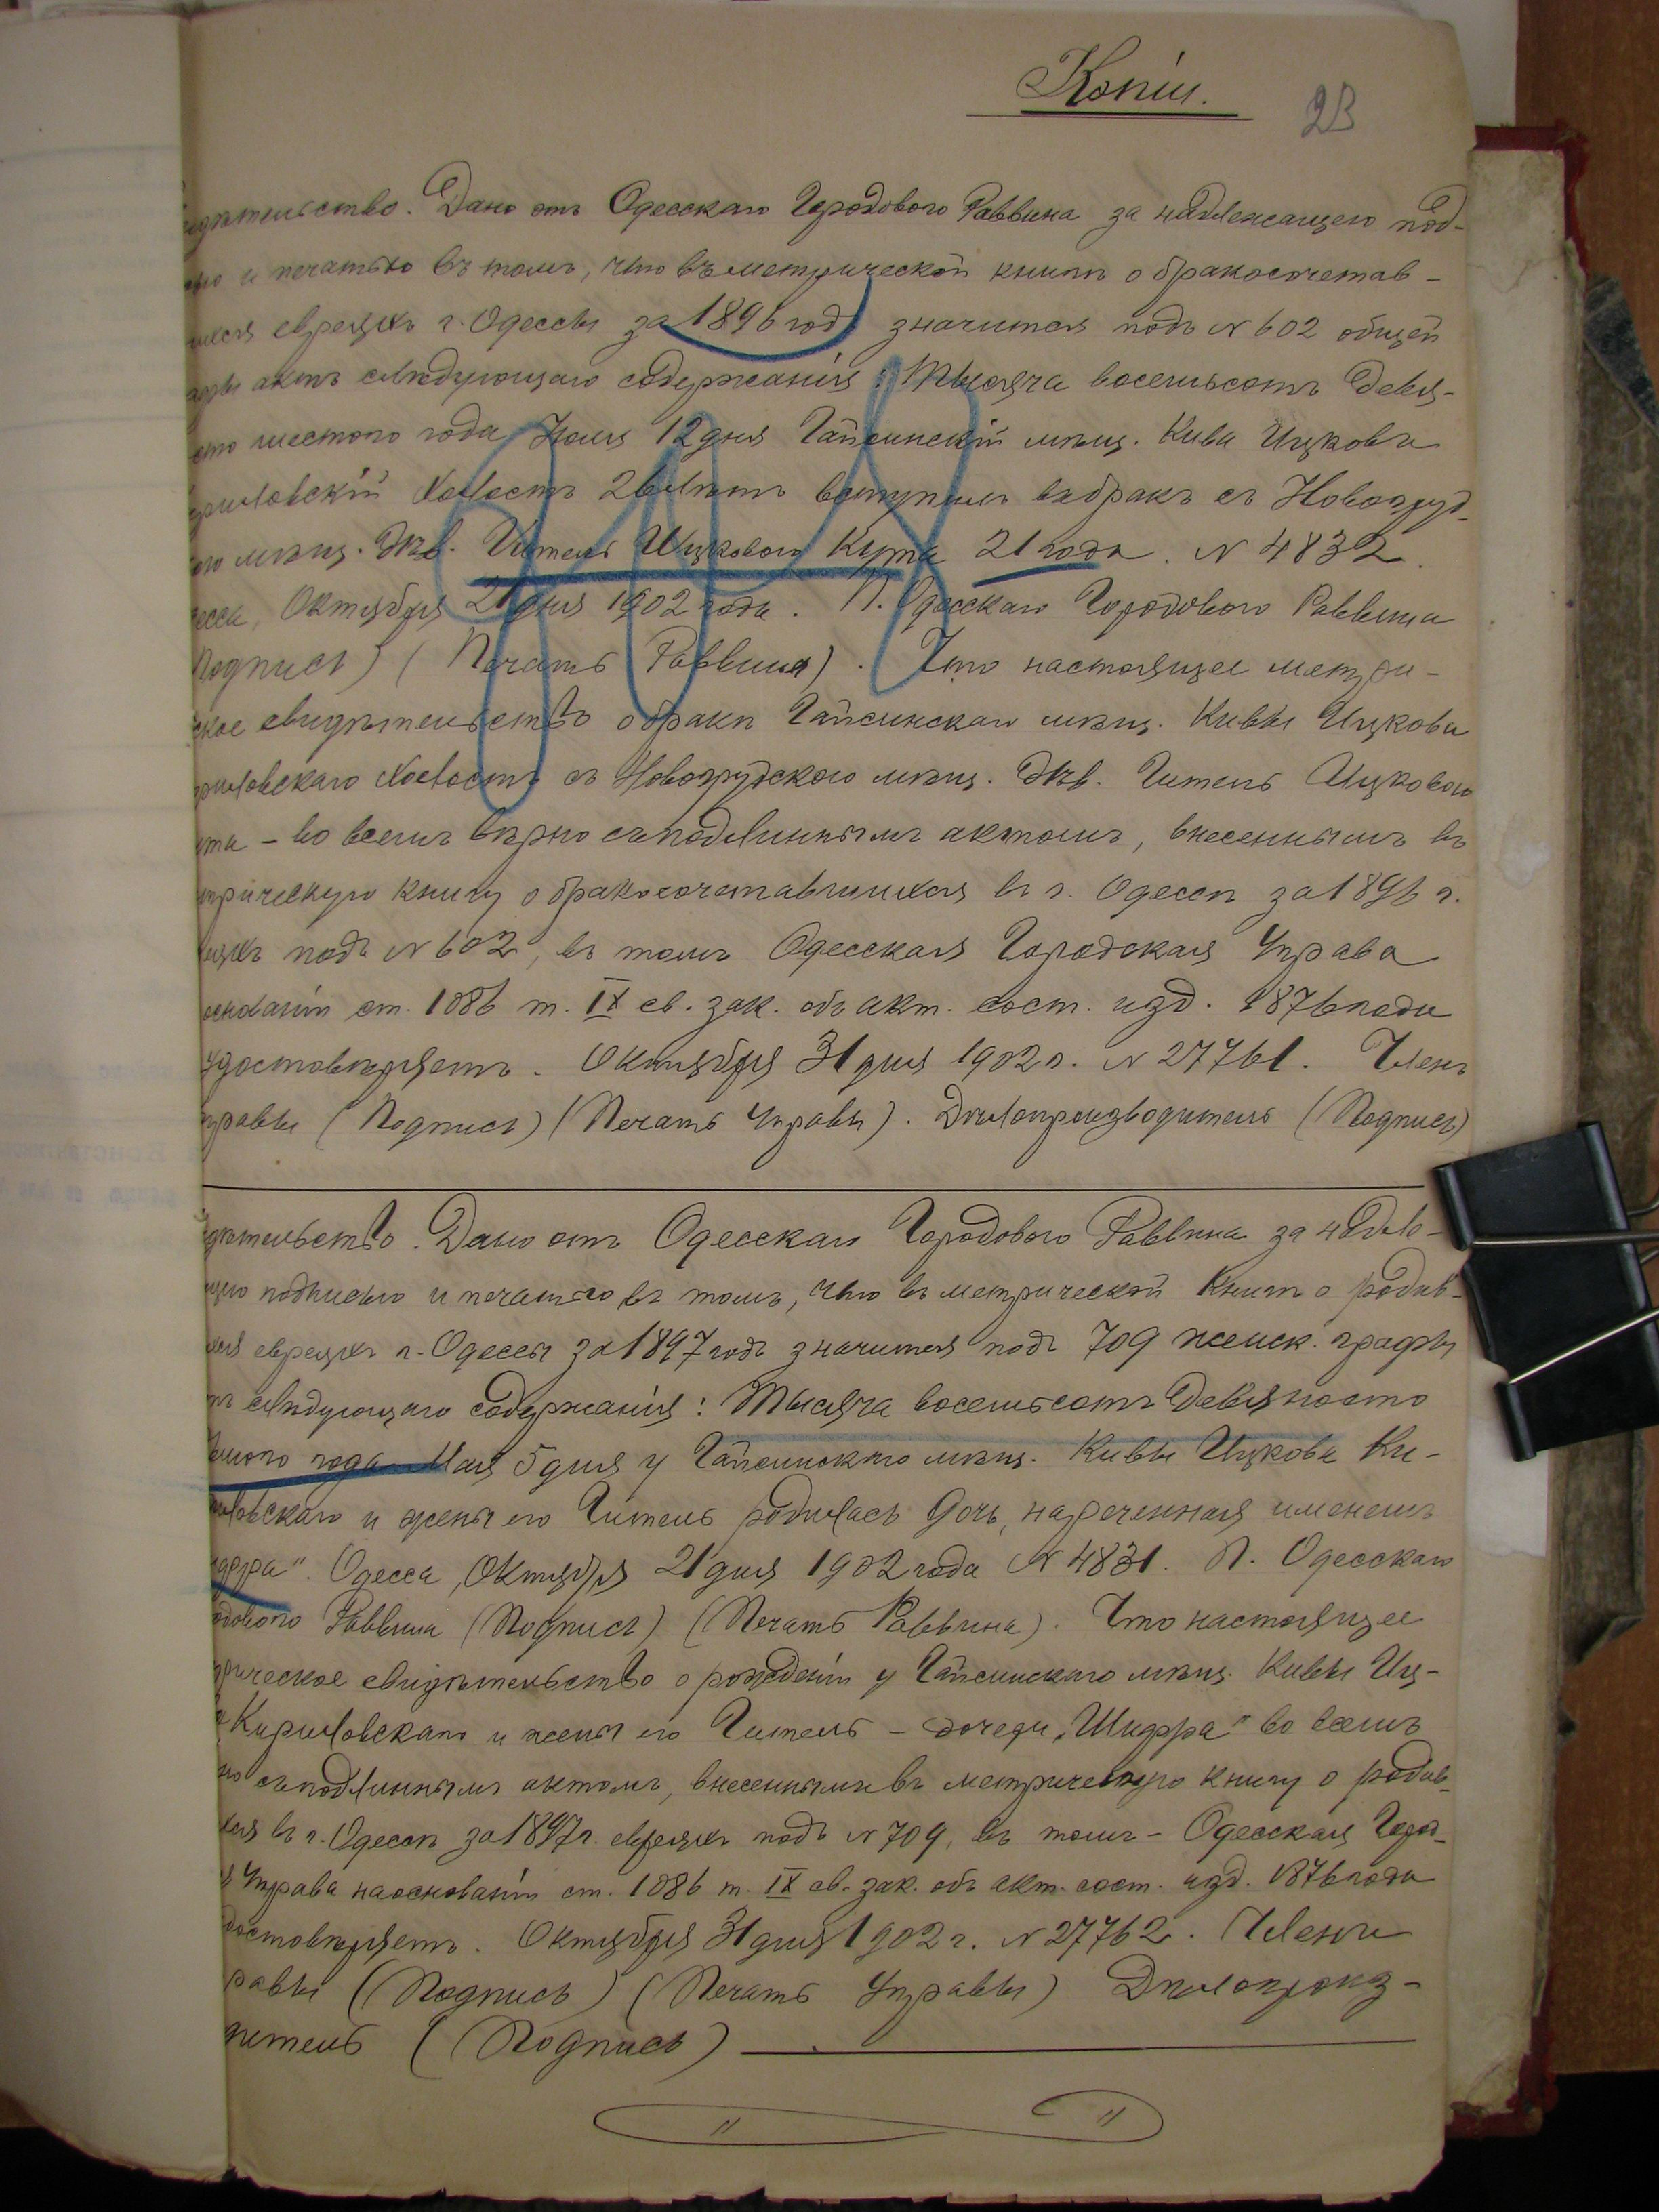 Копія.
23
идѣтельство. Дано отъ Одесскаго Городового Раввина за надлежащего под-
сью и печатью въ томъ, что въ метрической книгѣ о бракосочетав-
шихся евреяхъ г. Одессы за 1896 годъ значится подъ № 602 общей
графы актъ слѣдующаго содержанія: Тысяча восемьсотъ девя-
осто шестого года Іюля 12 дня Гайсинскій мѣщ. Кива Ицковъ
Кириловскій холостъ 26 лѣтъ вступилъ въ бракъ съ Новогруд-
ого мѣщ. дѣв. Гитель Ицкового Кута 21 года. № 4832.
десса, Октября 21 дня 1902 года. П. Одесскаго Городового Раввина
Подпись) (Печать Раввина). Что настоящее метри-
ское свидѣтельство о бракѣ Гайсинскаго мѣщ. Кивы Ицкова
Кириловскаго холостъ съ Новогрудского мѣщ. дѣв. Гитель Ицкового
ута – во всемъ вѣрно съ подлиннымъ актомъ, внесеннымъ въ
трическую книгу о бракосочетавшихся въ г. Одессѣ за 1896 г.
еяхъ подъ № 602, въ томъ Одесская Городская Управа
основаніи ст. 1086 т. IX св. зак. объ акт. сост. изд. 1876 года
удостовѣряетъ. Октября 31 дня 1902 г. № 27761. Членъ
правы (Подпись) (Печать Управы). Дѣлопроизводитель (Подпись)
дѣтельство. Дано отъ Одесскаго Городового Раввина за надле-
щею подписью и печатью въ томъ, что въ метрической книгѣ о родив-
хся евреяхъ г. Одессы за 1897 годъ значится подъ 709 женск. графы
тъ слѣдующаго содержанія: Тысяча восемьсотъ девяносто
едьмого года Мая 5 дня у Гайсинского мѣщ. Кивы Ицкова Ки-
риловскаго и жены его Гитель родилась дочь, нареченная именемъ
ифра". Одесса, Октября 21 дня 1902 года № 4831. П. Одесскаго
одового Раввина (Подпись) (Печать Раввина). Что настоящее
рическое свидѣтельство о рожденіи у Гайсинскаго мѣщ. Кивы Иц-
Кириловскаго и жены его Гитель – дочери „Шифра" во всемъ
но съ подлиннымъ актомъ, внесеннымъ въ метрическую книгу о родив-
хся въ г. Одессѣ за 1897 г. евреяхъ подъ № 709, въ томъ – Одесская Город-
Управа на основаніи ст. 1086 т. IX св. зак. объ акт. сост. изд. 1876 года
достовѣряетъ. Октября 31 дня 1902 г. № 27762. Членъ
равы (Подпись) (Печать Управы) Дѣлопроиз-
дитель (Подпись)